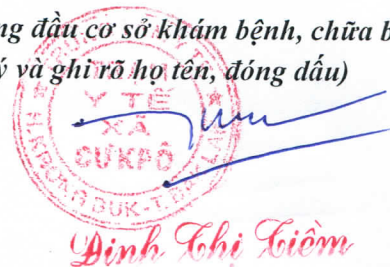 ng đầu cơ sở khám bệnh, chữa b
ý và ghi rõ họ tên, đóng dấu)
Y TẾ
XÃ
CƯKPÔ
H.KRÔNG BUK-T.ĐẮK LẮK
Đinh Thị Tiềm